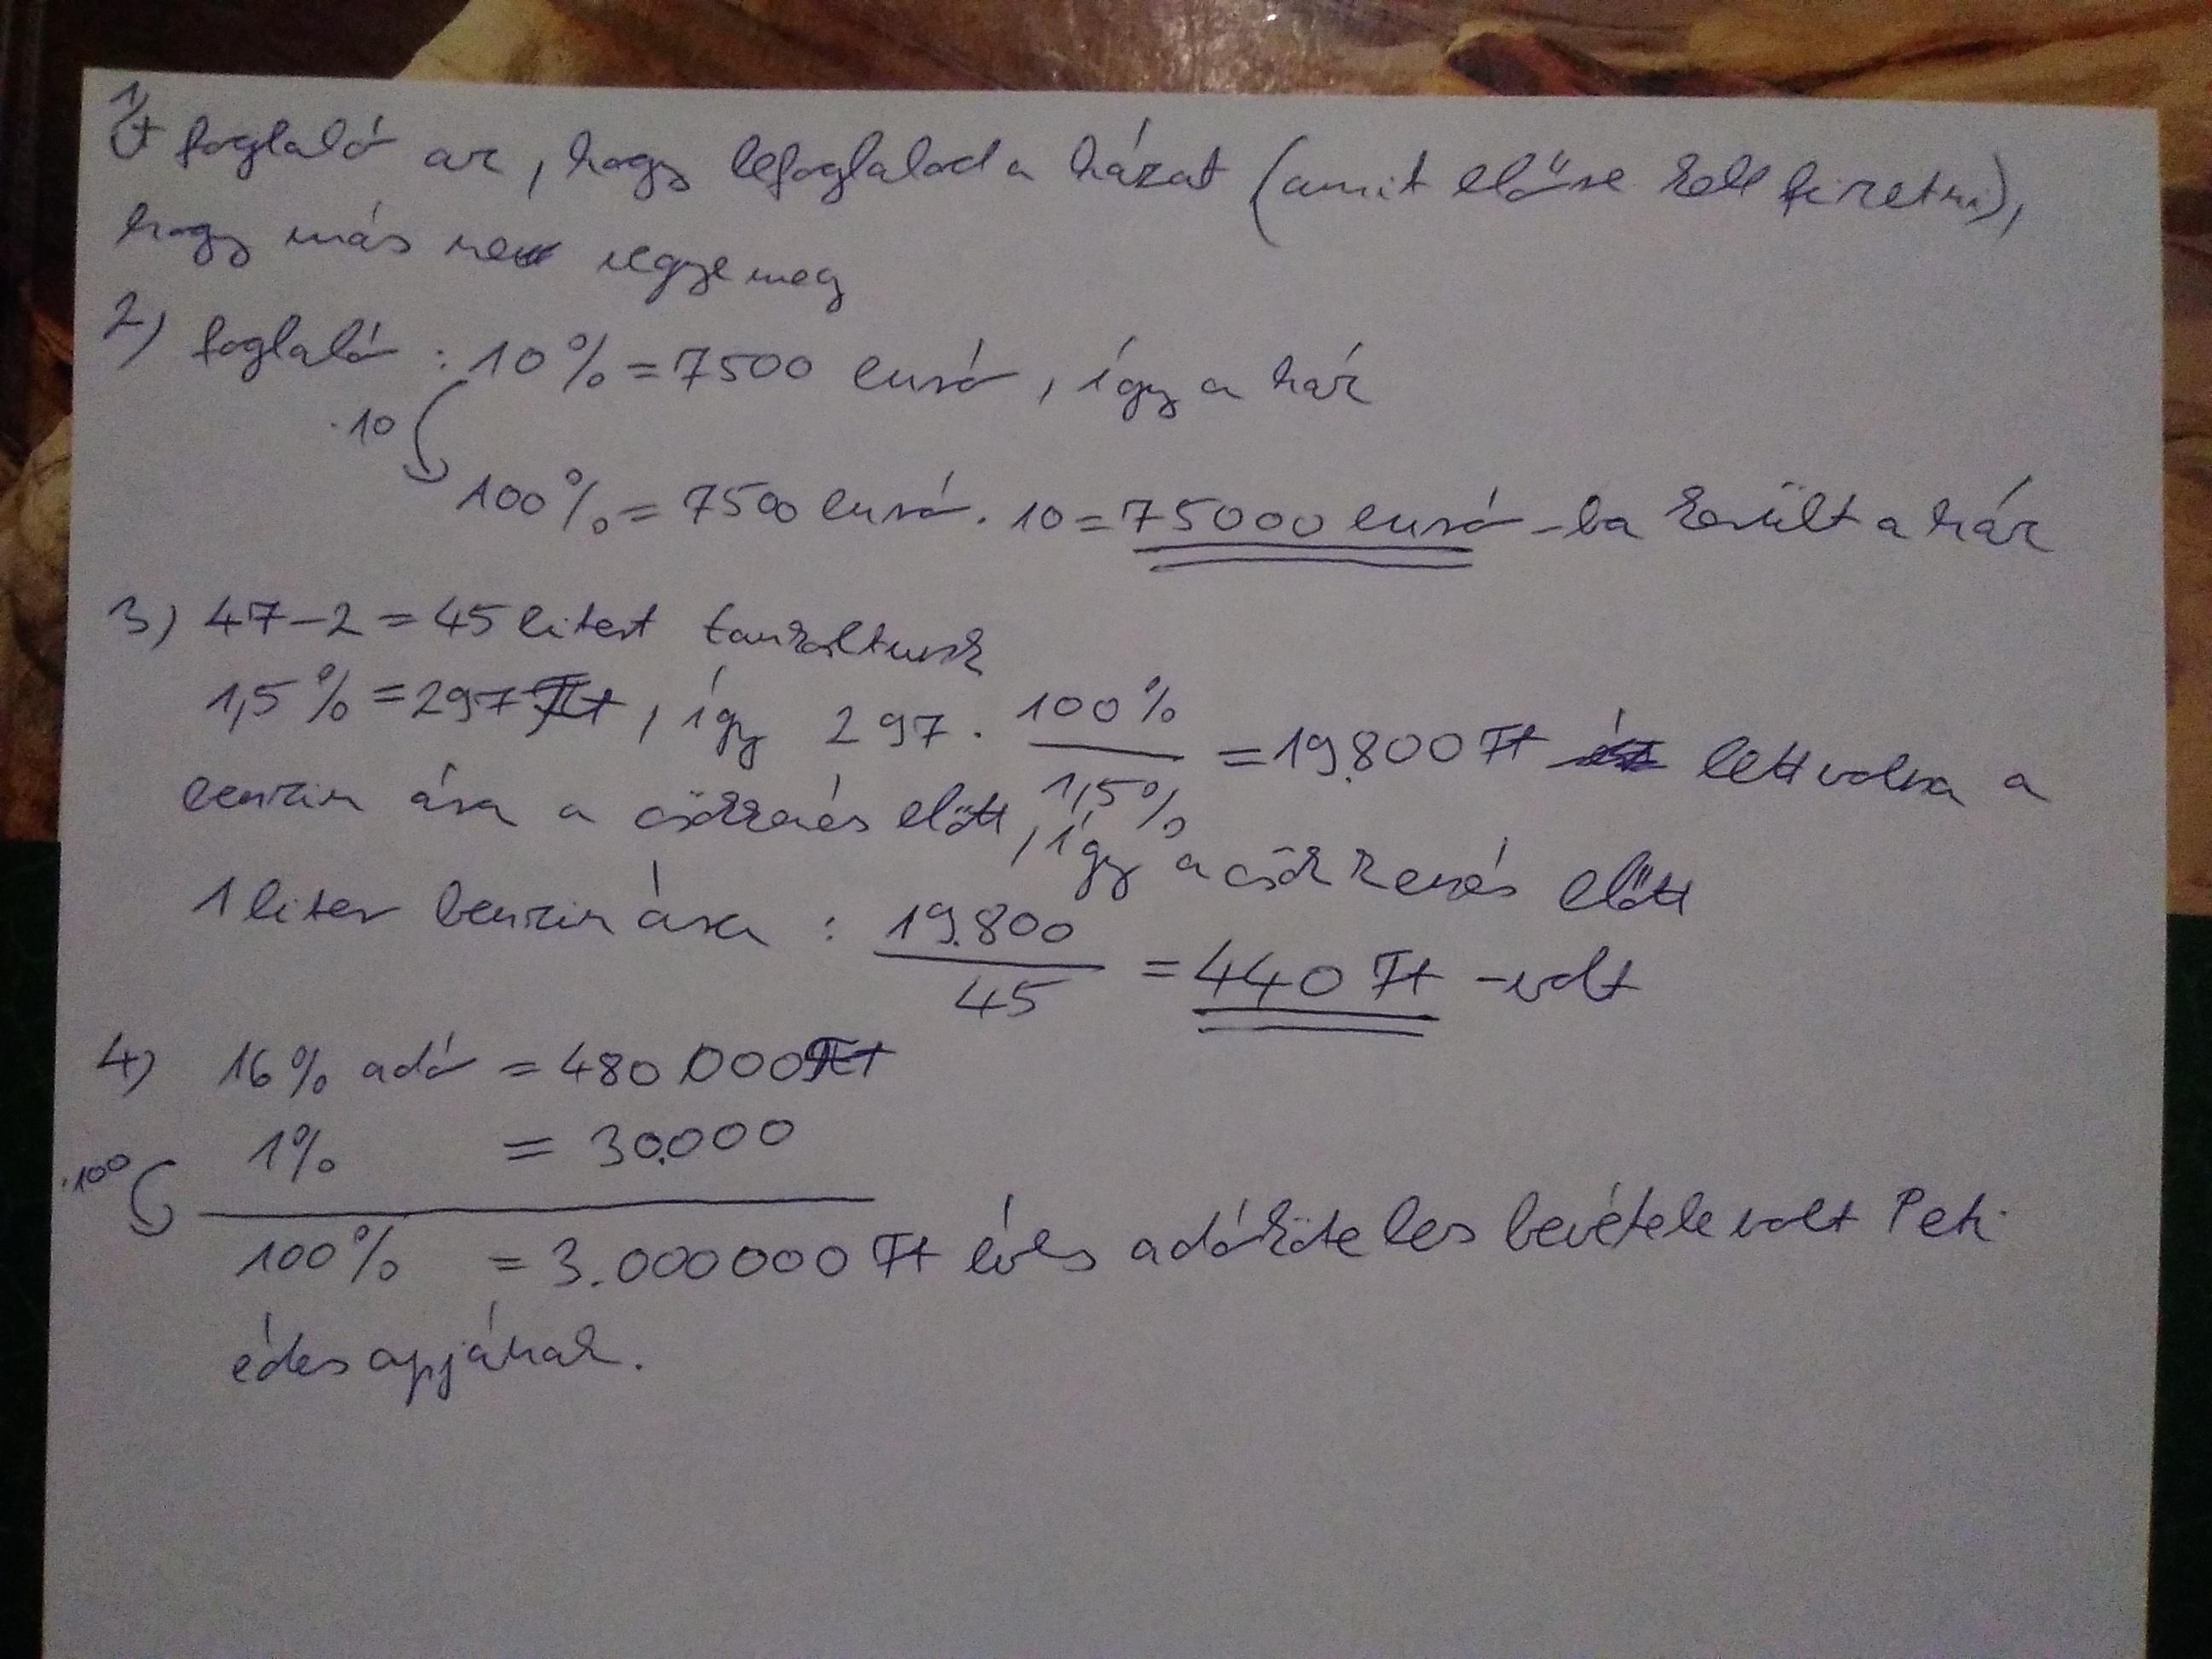 1) A foglaló az, hogy lefoglalod a házat (amit előre kell fizetni),
hogy más ne vegye meg
2) foglaló : 10% = 7500 euró, így a ház
·10
100% = 7500 euró · 10 = 75000 euró -ba került a ház
3) 47-2 = 45 litert tankoltunk
1,5% = 297 Ft, így 297 · 100% / 1,5% = 19.800 Ft lett volna a
benzin ára a csökkenés előtt, így a csökkenés előtt
1 liter benzin ára : 19.800 / 45 = 440 Ft -volt
4) 16% adó = 480.000 Ft
1% = 30.000
·100
100% = 3.000000 Ft éves adóköteles bevétele volt Peti
édesapjának.